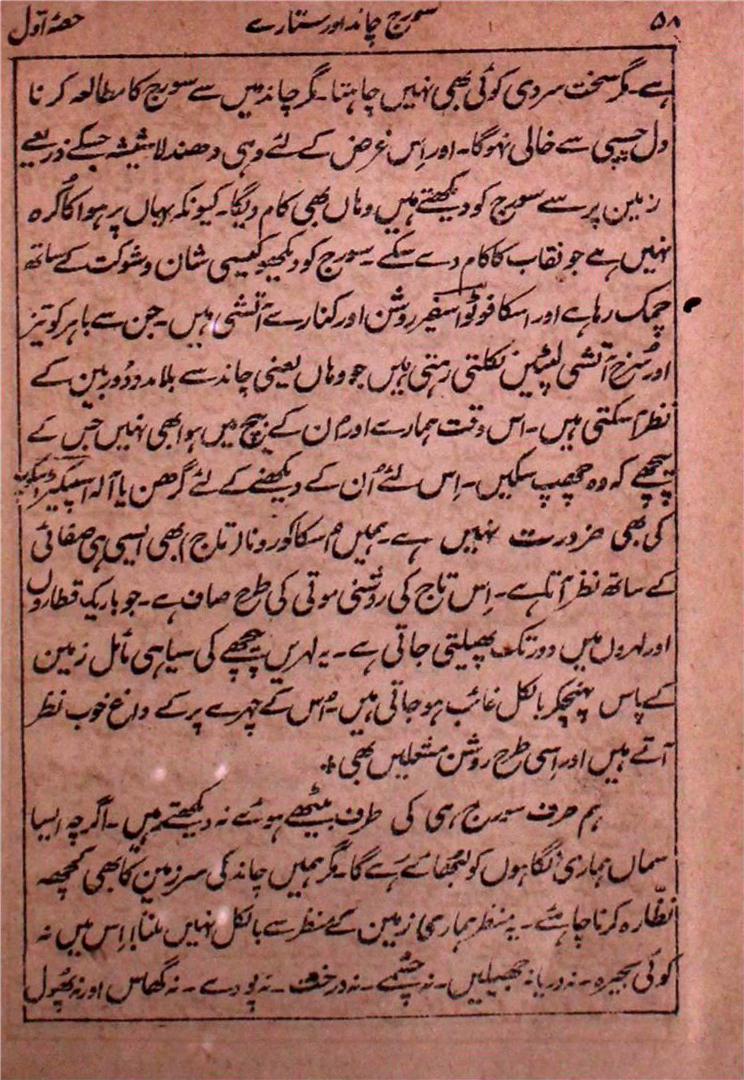 ۵۸ سورج چاند اور ستارے حصۂ اول
ہے۔ مگر سخت سردی کوئی بھی نہیں چاہتا۔ مگر چاند میں سے سورج کا مطالعہ کرنا
دلچسپی سے خالی نہوگا۔ اور اِس غرض کے لئے وہی دھندلا شیشہ جسکے ذریعے
زمین پر سے سورج کو دیکھتے ہیں وہاں بھی کام دیگا۔ کیونکہ یہاں پر ہوا کا کُرہ
نہیں ہے جو نقاب کا کام دے سکے۔ سورج کو دیکھو کیسی شان و شوکت کے ساتھ
چمک رہا ہے اور اسکا فوٹو اسفیر روشن اور کنارے آتشی ہیں۔ جن سے باہر کو تیز
اور سُرخ آتشی لپٹیں نکلتی رہتی ہیں جو وہاں یعنی چاند سے بلا مدد دُوربین کے
نظر آسکتی ہیں۔ اس وقت ہمارے اور اُن کے بیچ میں ہوا بھی نہیں جس کے
پیچھے کہ وہ چھپ سکیں۔ اِس لئے اُن کے دیکھنے کے لئے گرھن یا آلہ اسپکٹراسکوپ
کی بھی ضرورت نہیں ہے۔ ہمیں اُسکا کورونا (تاج) بھی ایسی ہی صفائی
کے ساتھ نظر آتا ہے۔ اِس تاج کی روشنی موتی کی طرح صاف ہے۔ جو باریک قطاروں
اور لہروں میں دور تک پھیلتی جاتی ہے۔ یہ لہریں پیچھے کی سیاہی مائل زمین
کے پاس پہنچکر بالکل غائب ہو جاتی ہیں۔ اُس کے چہرے پر کے داغ خوب نظر
آتے ہیں اور اِسی طرح روشن مشعلیں بھی +
ہم صرف سورج ہی کی طرف بیٹھے ہوئے نہ دیکھتے رہیں۔ اگرچہ ایسا
سماں ہماری نگاہوں کو لُبھائے رہے گا۔ مگر ہمیں چاند کی سرزمین کا بھی کچھ
نظّارہ کرنا چاہئے۔ یہ منظر ہماری زمین کے منظر سے بالکل نہیں ملتا۔ اِس میں نہ
کوئی بحیرہ۔ نہ دریا نہ جھیلیں۔ نہ چشمے۔ نہ درخت۔ نہ پودے۔ نہ گھاس اور نہ پھُول